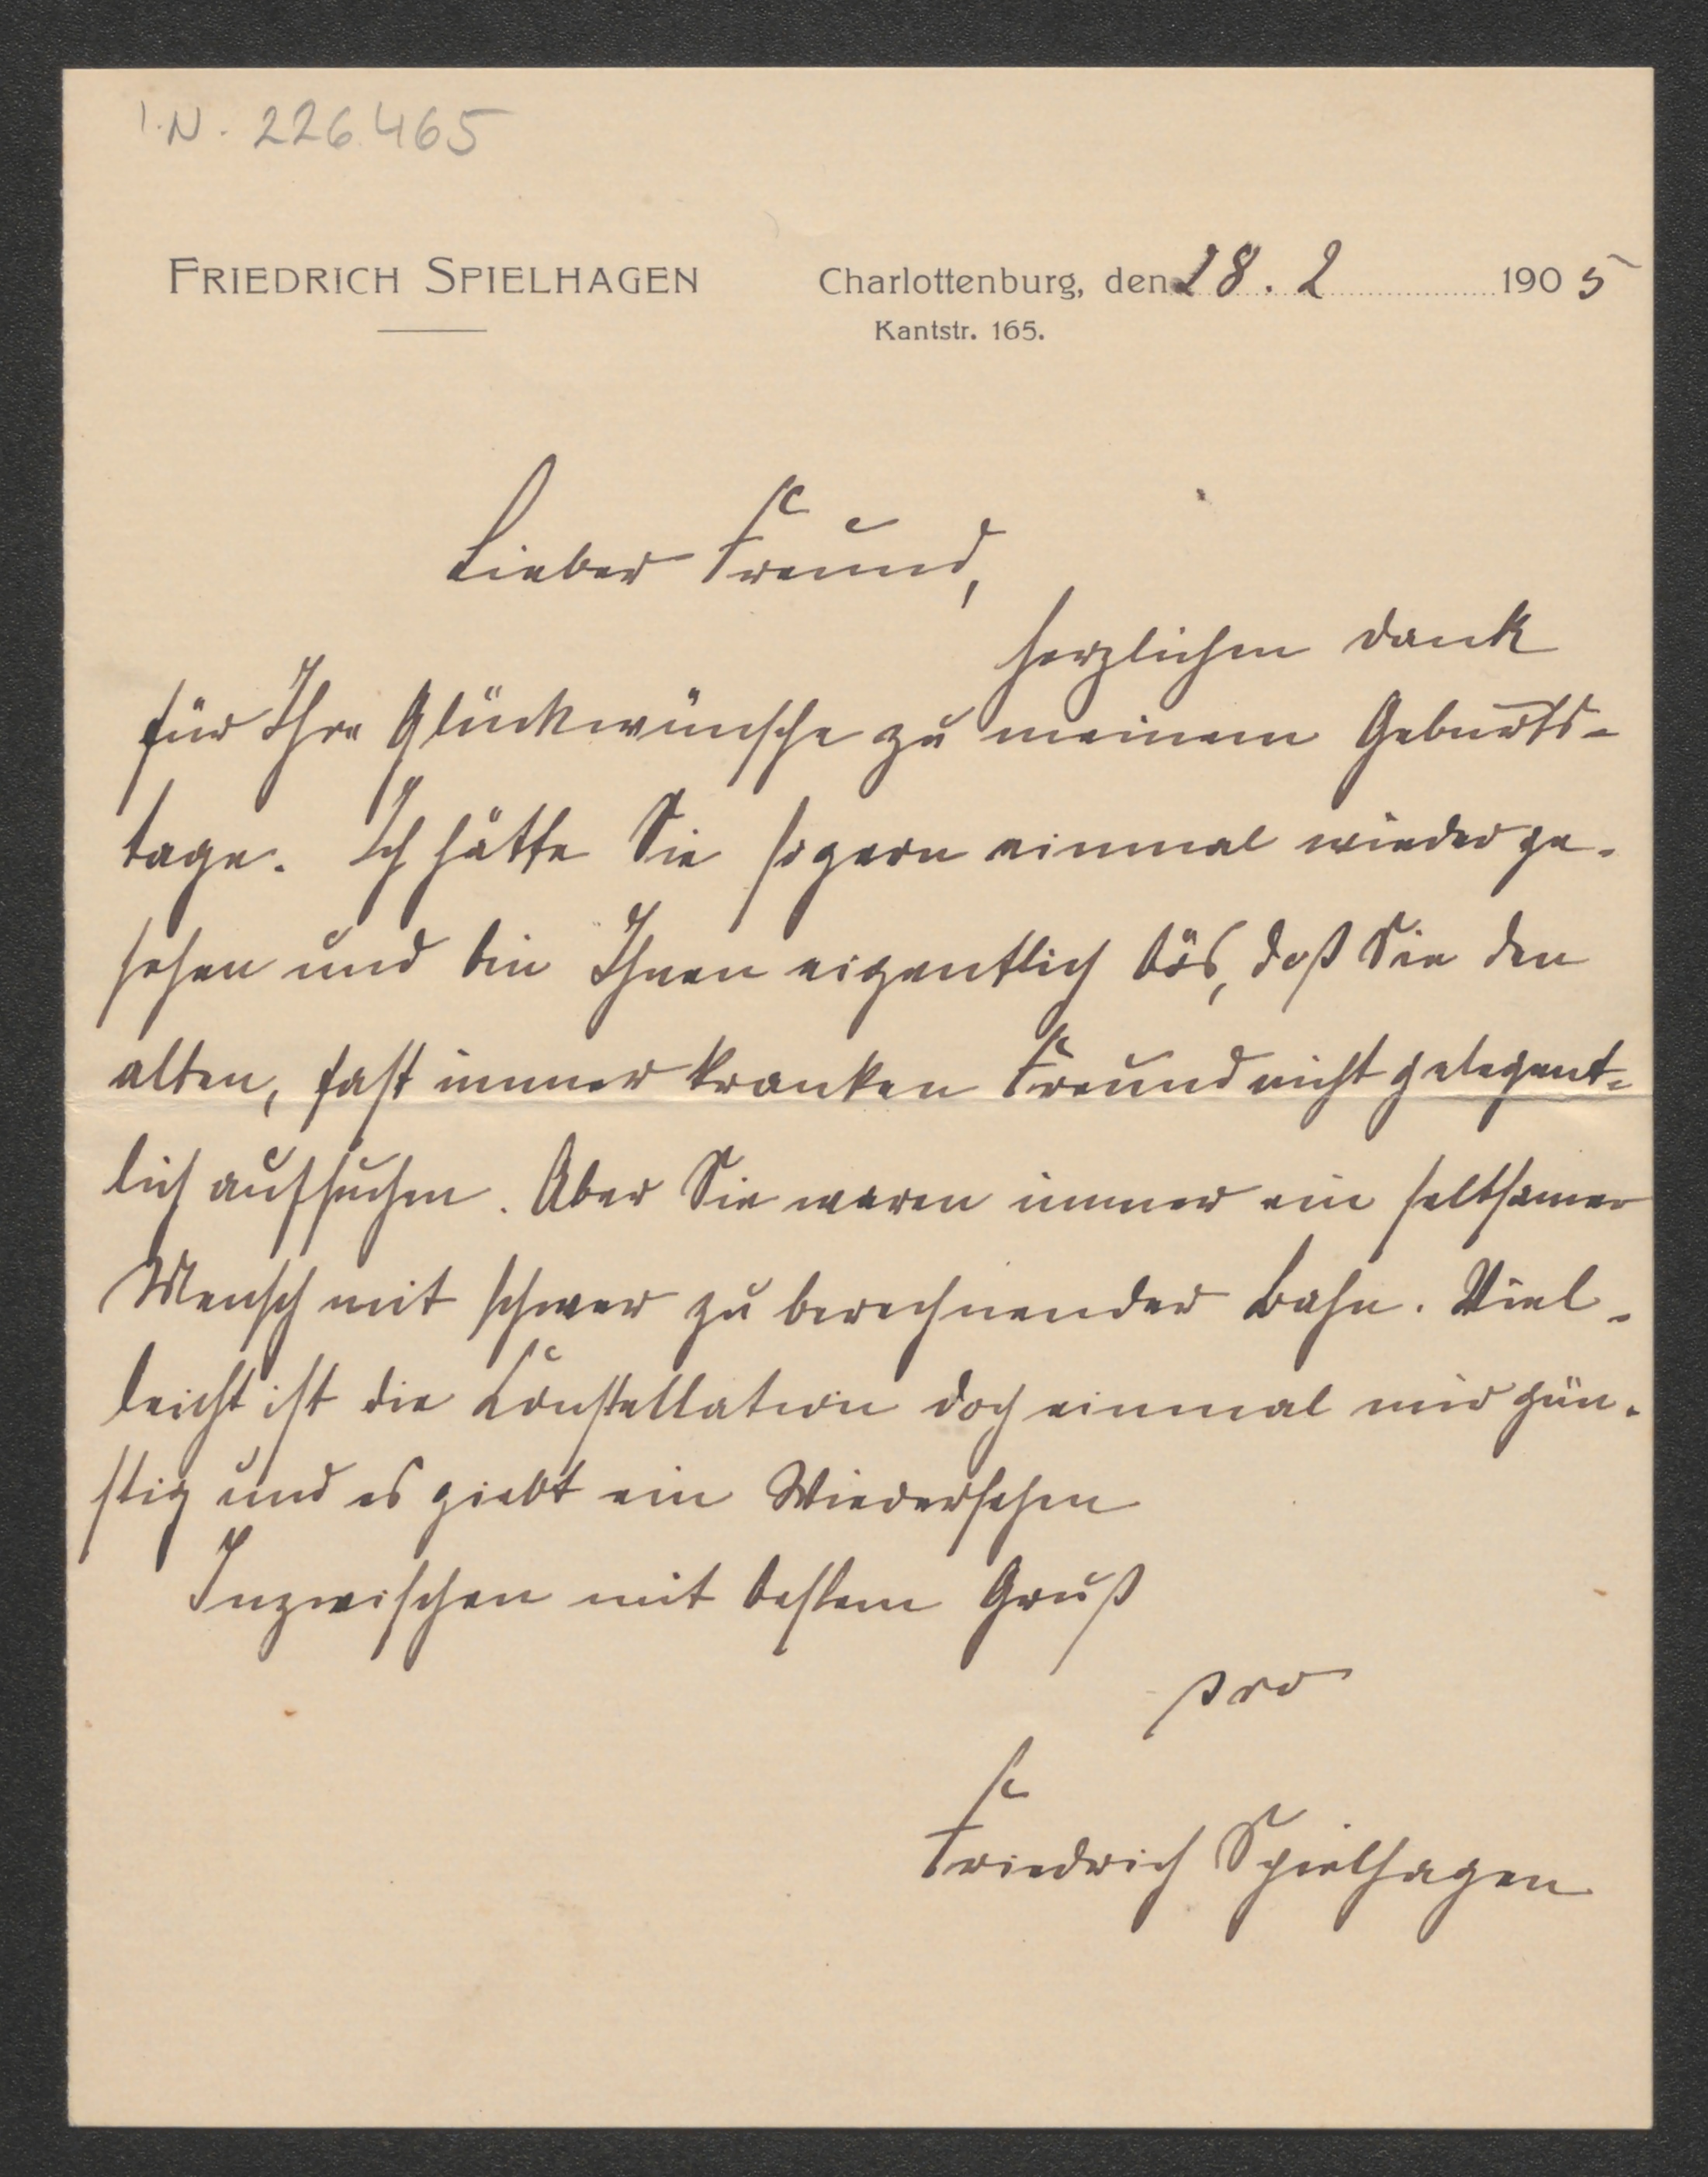 I.N. 226.465
FRIEDRICH SPIELHAGEN
Charlottenburg, den 28. 2 1905
Kantstr. 165.
Lieber Freund,
herzlichen Dank
für Ihre Glückwünsche zu meinem Geburts-
tage. Ich hätte Sie so gern einmal wiederge-
sehen und bin Ihnen eigentlich bös, daß Sie den
alten, fast immer kranken Freund nicht gelegent-
lich aufsuchen. Aber Sie waren immer ein seltsamer
Mensch mit schwer zu berechnender Bahn. Viel-
leicht ist die Constellation doch einmal mir gün-
stig und es giebt ein Wiedersehen
Inzwischen mit bestem Gruß
Friedrich Spielhagen